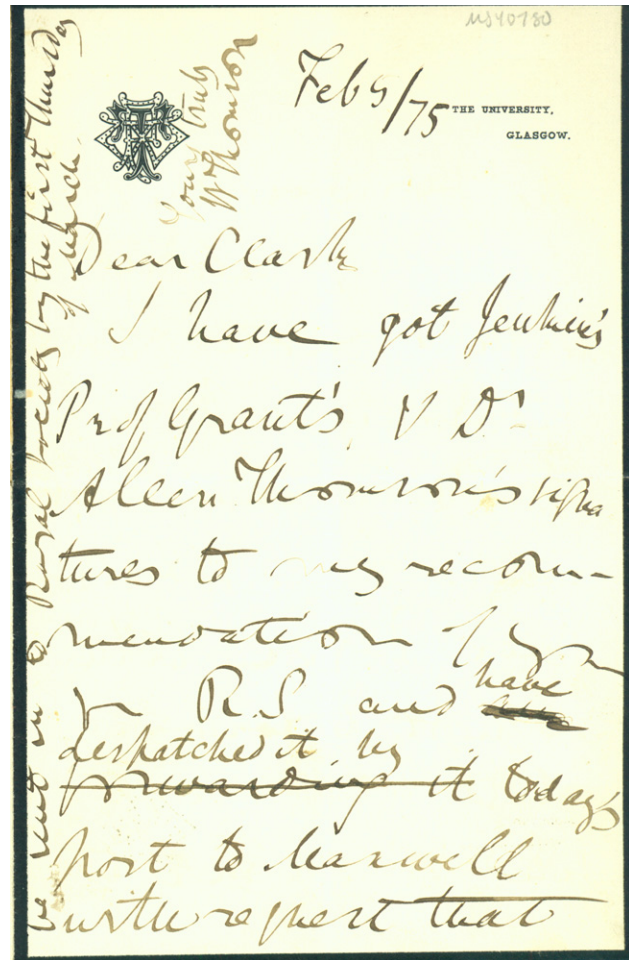 MS40780
Feb 5/75
THE UNIVERSITY,
GLASGOW.
Dear Clark
I have got Jenkin's
Prof Grant's & Dr
Allen Thomson's signa
tures to my recom-
mendation of you
for R.S. and have
despatched it by
forwarding it today's
post to Maxwell
with request that
be sent in to Royal Society by the first Thursday
of March.
Yours truly
W Thomson